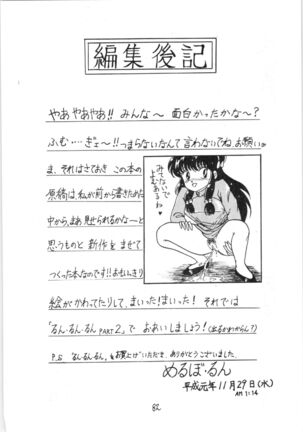 編集後記
やあやあやあ!! みんな〜 面白かったかな〜?
ふむ…ぎょ〜!!つまらないなんて言わないでね、お願い。
ま、それはさておき この本の
原稿は、私が前から書きためた
中から、まあ見せられるかな〜と
思うものと 新作を まぜて
つくった本なのです!!おもいっきり
絵がかわってたりして、まいった!まいった! それでは
「るん・るん・るん PART2」で おあいしましょう!(出るかわからん?)
P.S るん・るん・るん、お買上げいただき、ありがとうございました
めるぼ・るん
平成元年11月29日(水)
AM 1:14
82